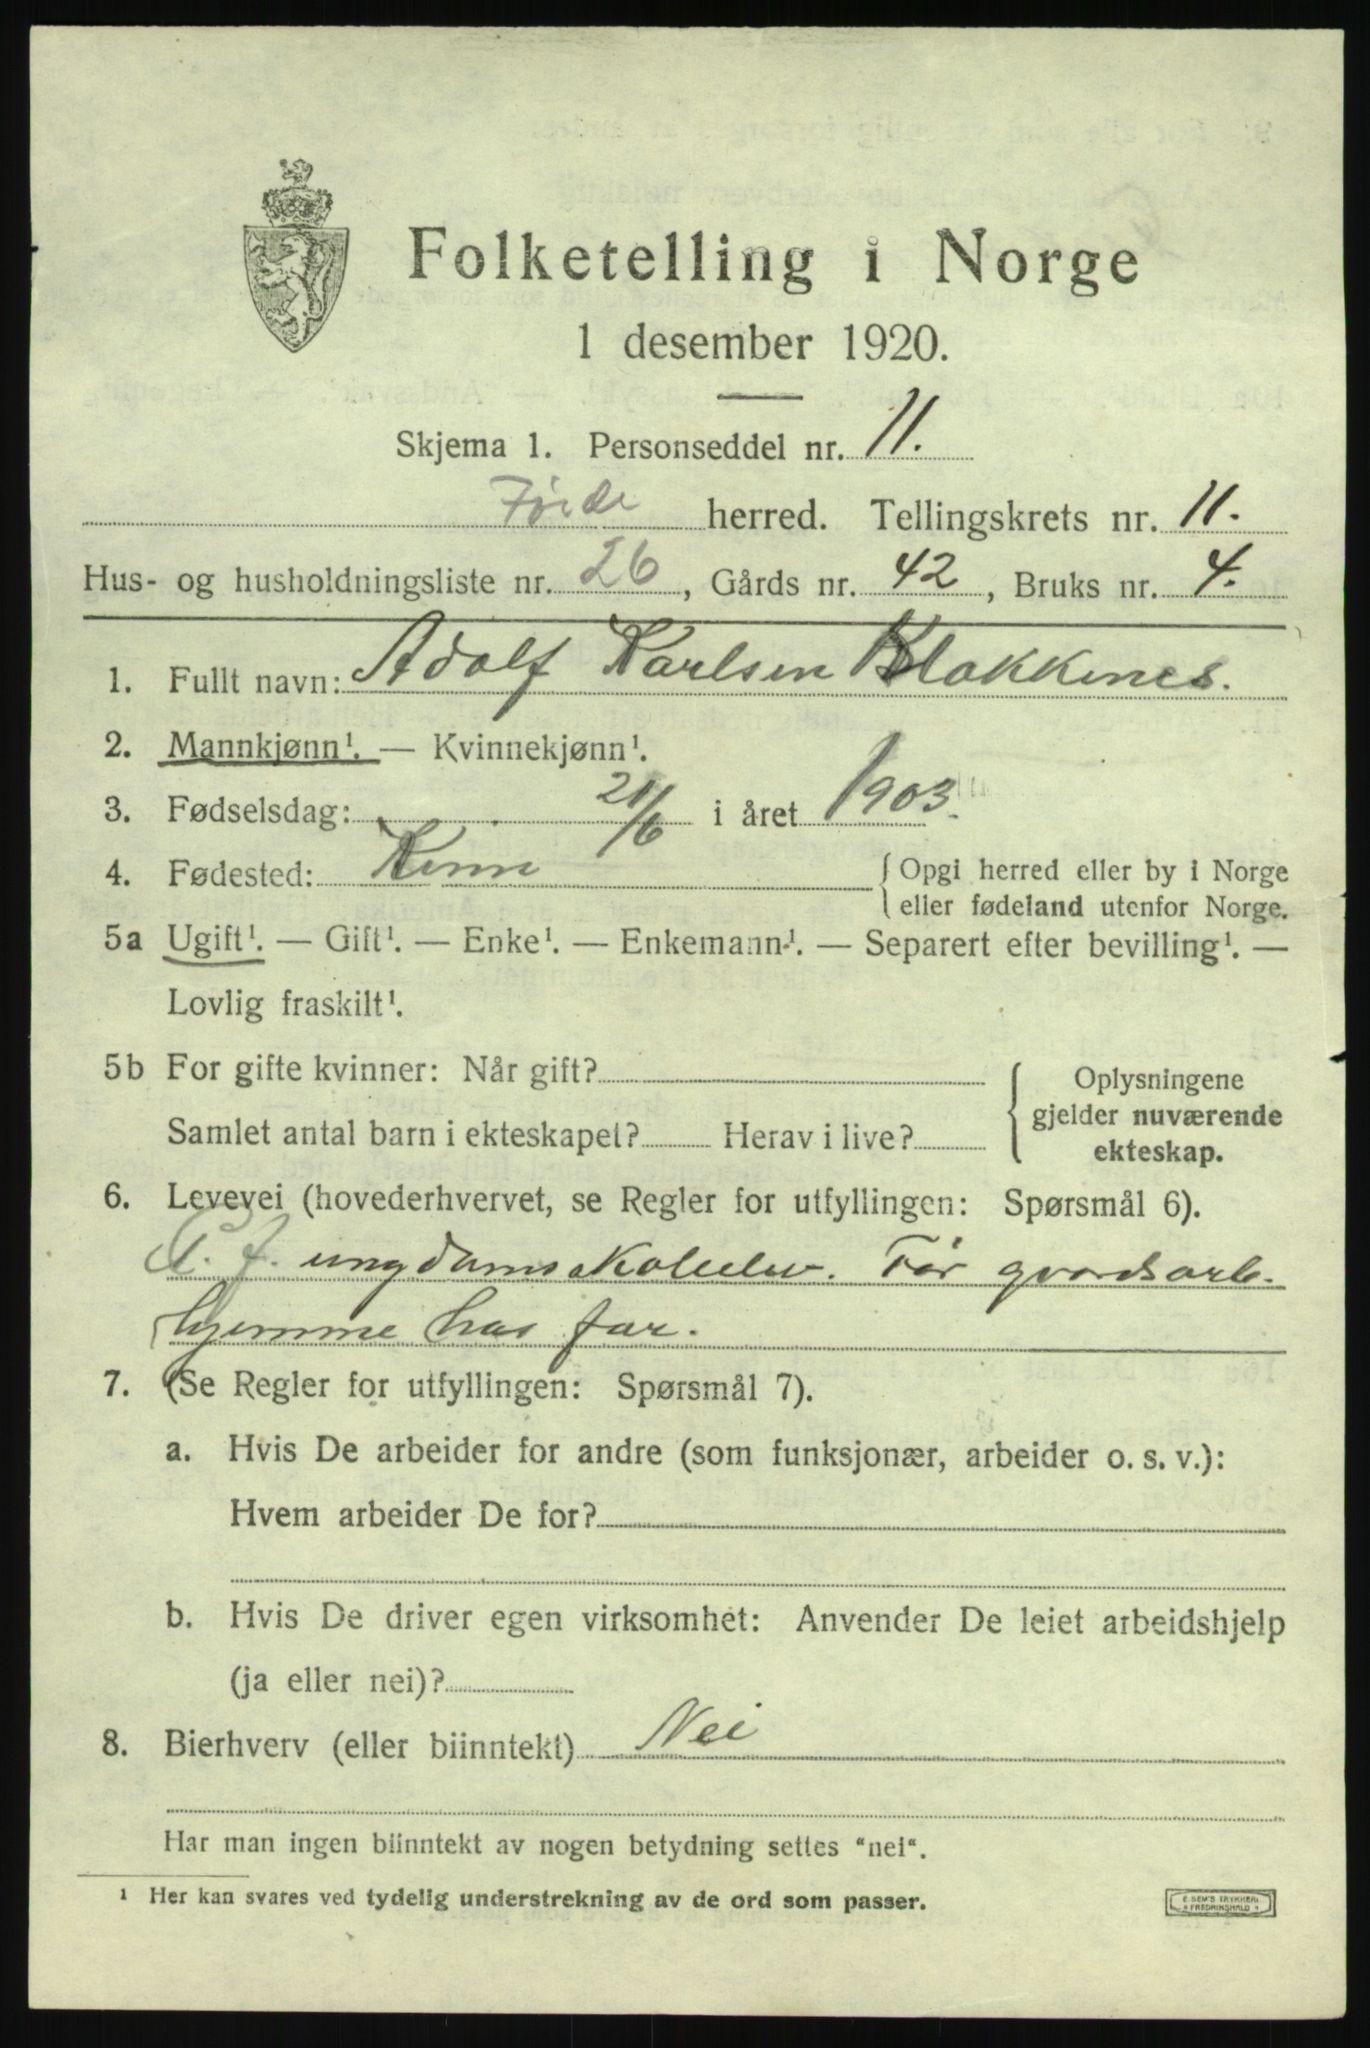 Folketelling i Norge
1 desember 1920.
Skjema 1. Personseddel nr. 11.
Førde herred. Tellingskrets nr. 11.
Hus- og husholdningsliste nr. 26, Gårds nr. 42, Bruks nr. 4.
1. Fullt navn: Adolf Karlsen Klakkenes.
2. Mannkjønn¹. — Kvinnekjønn¹.
3. Fødselsdag: 21/6 i året 1903.
4. Fødested: Kinn { Opgi herred eller by i Norge
eller fødeland utenfor Norge.
5a Ugift¹. — Gift¹. — Enke¹. — Enkemann¹. — Separert efter bevilling¹. —
Lovlig fraskilt¹.
5b For gifte kvinner: Når gift?
Samlet antal barn i ekteskapet? Herav i live?
{ Oplysningene
gjelder nuværende
ekteskap.
6. Levevei (hovederhvervet, se Regler for utfyllingen: Spørsmål 6).
P. f. ungdomsskoleelev. Før gaardsarb.
hjemme hos far.
7. (Se Regler for utfyllingen: Spørsmål 7).
a. Hvis De arbeider for andre (som funksjonær, arbeider o. s. v.):
Hvem arbeider De for?
b. Hvis De driver egen virksomhet: Anvender De leiet arbeidshjelp
(ja eller nei)?
8. Bierhverv (eller biinntekt) Nei
Har man ingen biinntekt av nogen betydning settes "nei".
¹ Her kan svares ved tydelig understrekning av de ord som passer.
E. SEM'S TRYKKERI
FREDRIKSHALD